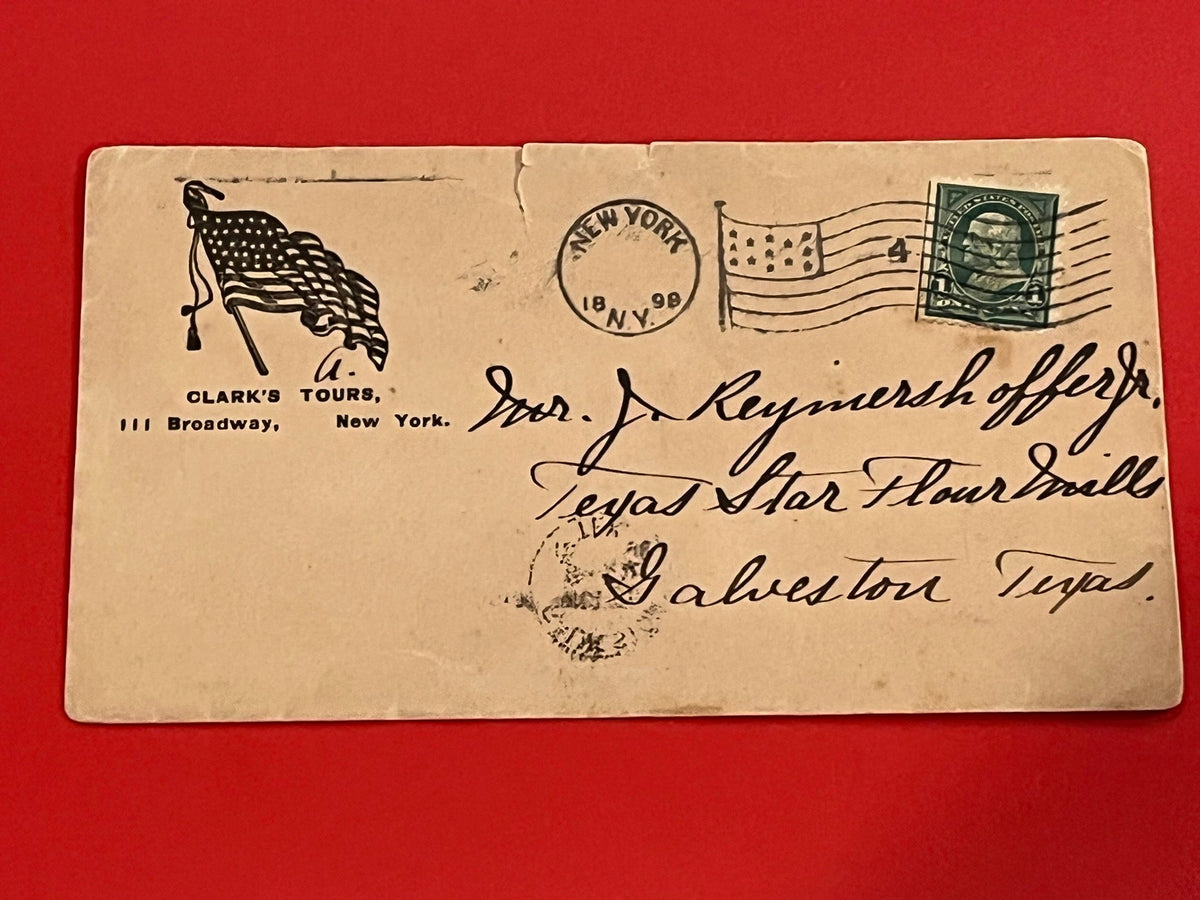 a.
CLARK'S TOURS,
111 Broadway, New York.
NEW YORK
18 98
N.Y.
4
UNITED STATES
1 ONE 1
Mr. J. Reymershoffer Jr.
Texas Star Flour Mills
Galveston Texas.